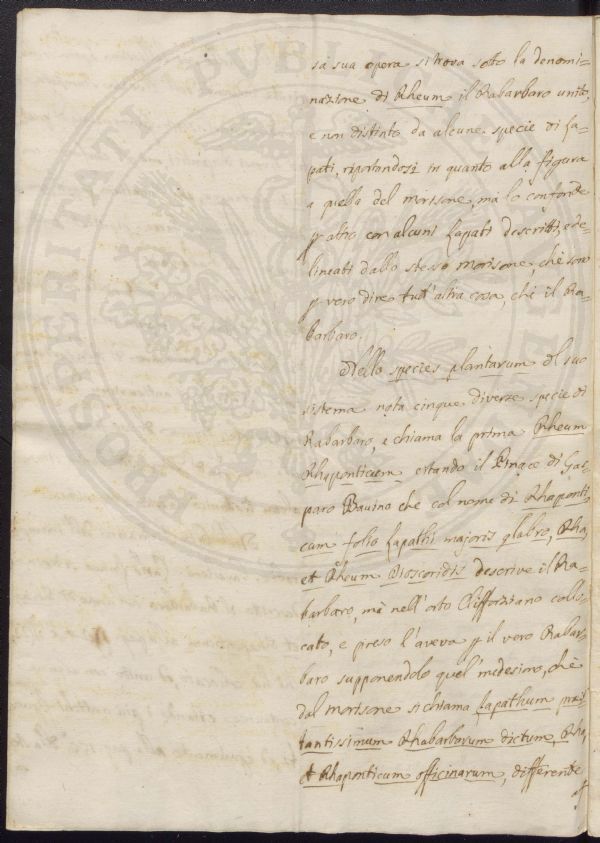 sa sua opera si trova sotto la denomi-
nazione di Rheum il Rabarbaro unito,
e non distinto da alcune specie di La-
pati, riportandosi in quanto alla figura
a quella del Morisone, mà lo confonde
p altro con alcuni Lapati descritti, e de-
lineati dallo stesso Morisone, che sono
p vero dire tutt'altra cosa, chè il Ra-
barbaro.
Nello species plantarum del suo
sistema nota cinque diverse specie di
Rabarbaro, e chiama la prima Rheum
Rhaponticum citando il Pinace di Gas-
paro Bauino che col nome di Rhaponti-
cum folio Lapathi majoris glabro, Rha,
et Rheum Dioscoridis descrive il Ra-
barbaro, mà nell'orto Cliffortiano collo-
cato, e preso l'aveva p il vero Rabar-
baro supponendolo quel medesimo, chè
dal Morisone si chiama Lapathum præs-
tantissimum Rhabarbarum dictum, Rha,
et Rhaponticum officinarum, differente
PROSPERITATI PVBLICAE